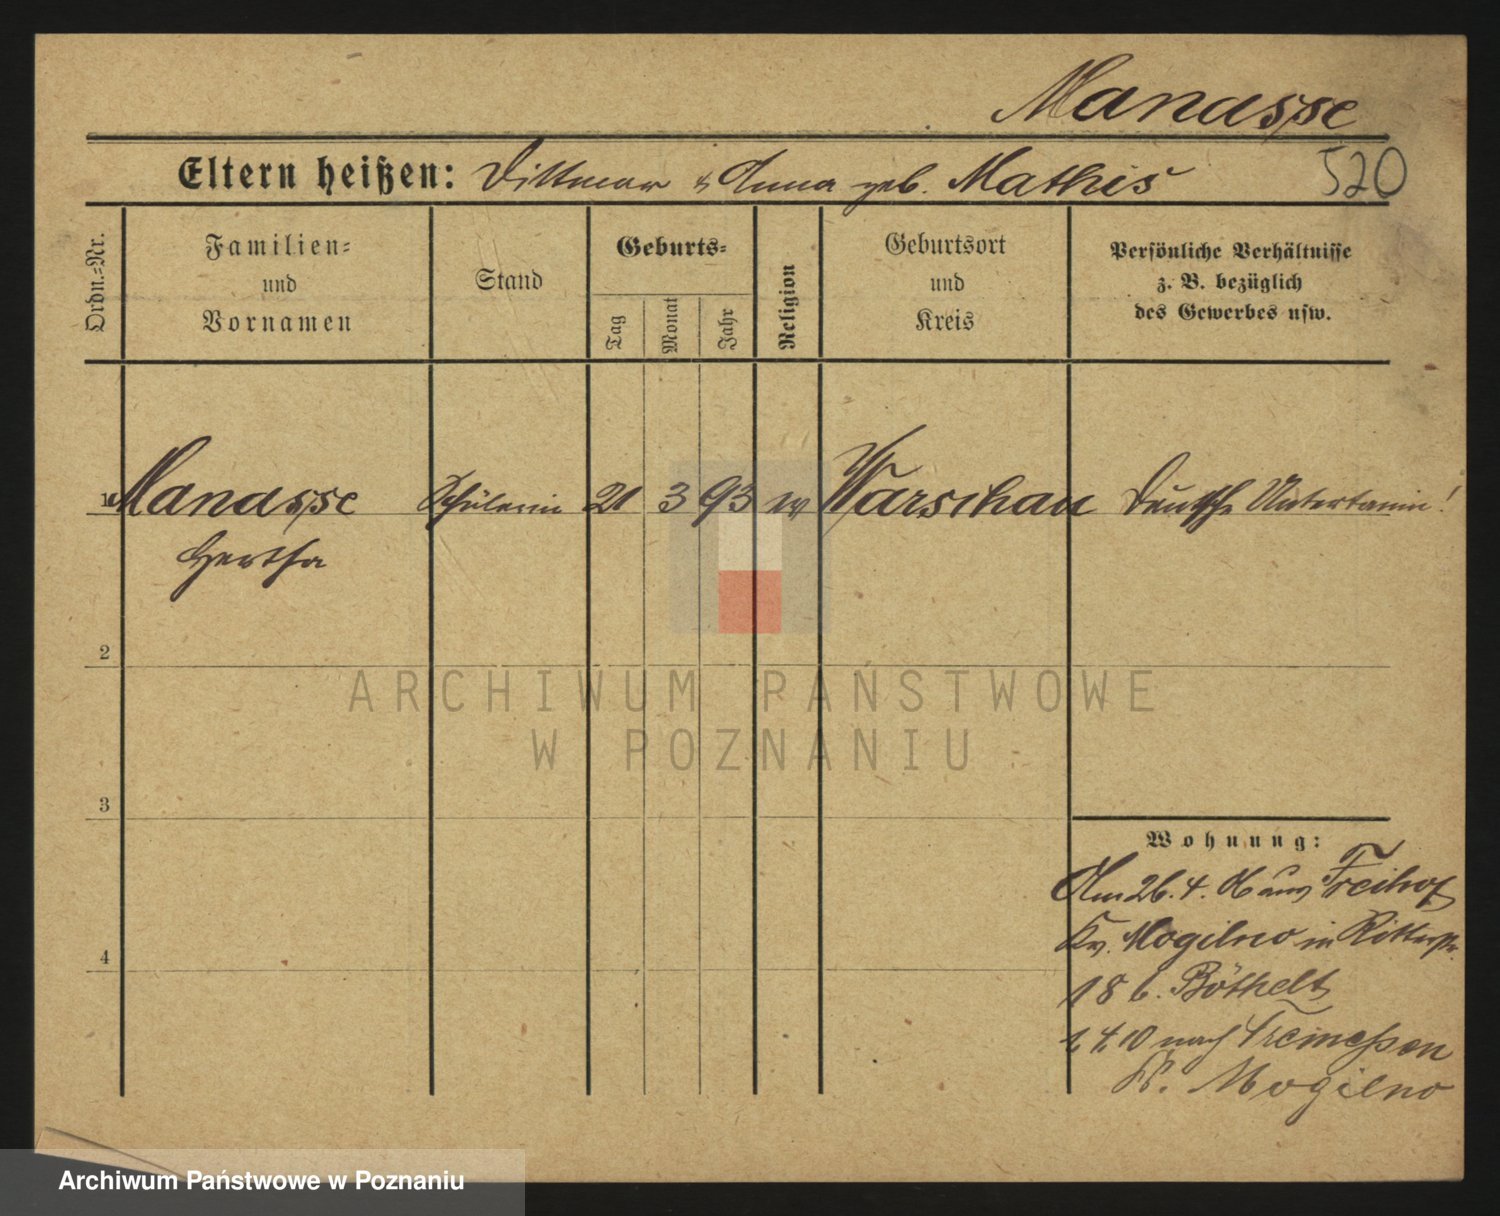 Manasse
520
Eltern heißen: Dittmar & Anna geb. Mathis
Ordn.-Nr.
Familien-
und
Vornamen
Stand
Geburts-
Tag
Monat
Jahr
Religion
Geburtsort
und
Kreis
Persönliche Verhältnisse
z. B. bezüglich
des Gewerbes usw.
1 Manasse Schülerin 21 3 93 Warschau Deutsche Untertanin!
Hertha
2
3
4
Wohnung:
Am 26. 4. 06 aus Freihof
Kr. Mogilno in Ritterstr.
18 b. Böthelt
1. 4. 10 nach Tremessen
Kr. Mogilno
ARCHIWUM PAŃSTWOWE
W POZNANIU
Archiwum Państwowe w Poznaniu